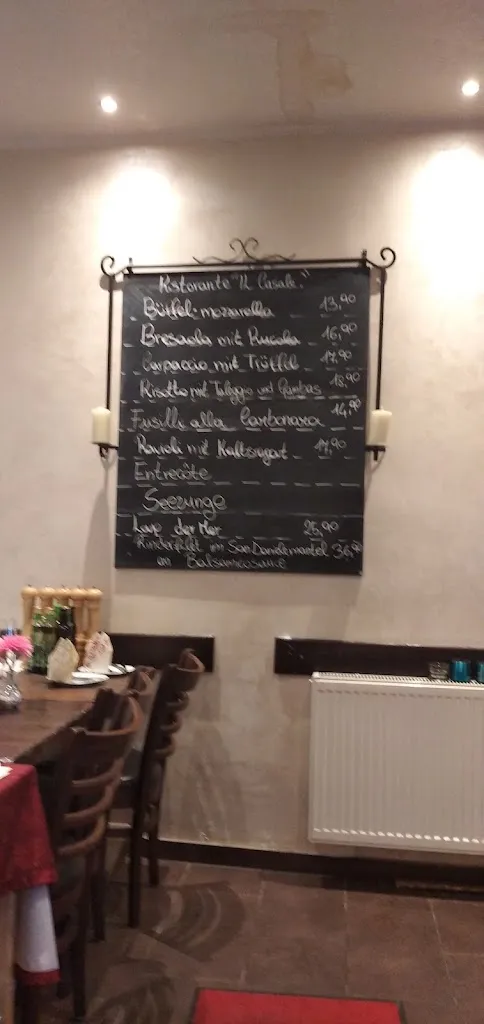 Ristorante "Il Casale"
Büffel-mozzarella 13,90
Bresaola mit Rucola 16,90
Carpaccio mit Trüffel 17,90
Risotto mit Taleggio und Gambas 18,90
Fusilli alla Carbonara 14,90
Ravioli mit Kalbsragout 17,90
Entrecôte
Seezunge
Lup der Mer 25,90
Rinderfilet im San Danielemantel 36,90
an Balsamicosauce